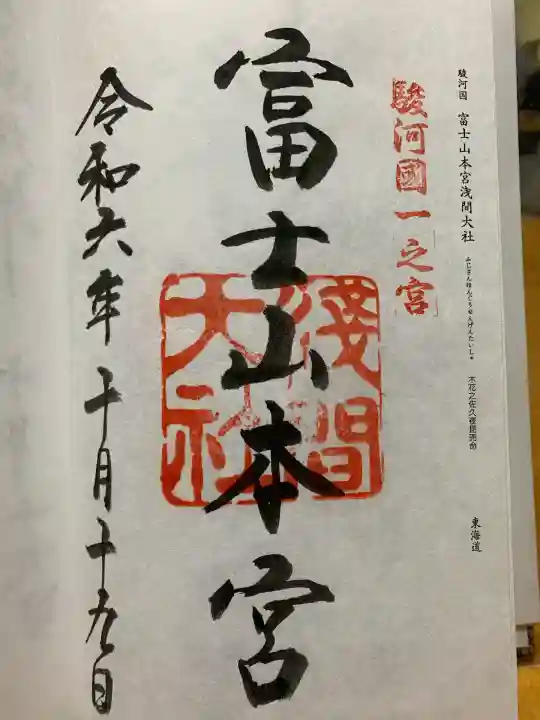 駿河国 富士山本宮浅間大社 ふじさんほんぐうせんげんたいしゃ 木花之佐久夜毘売命 東海道
駿河國一之宮
富士山本宮
淺間
大社
令和六年十月十九日